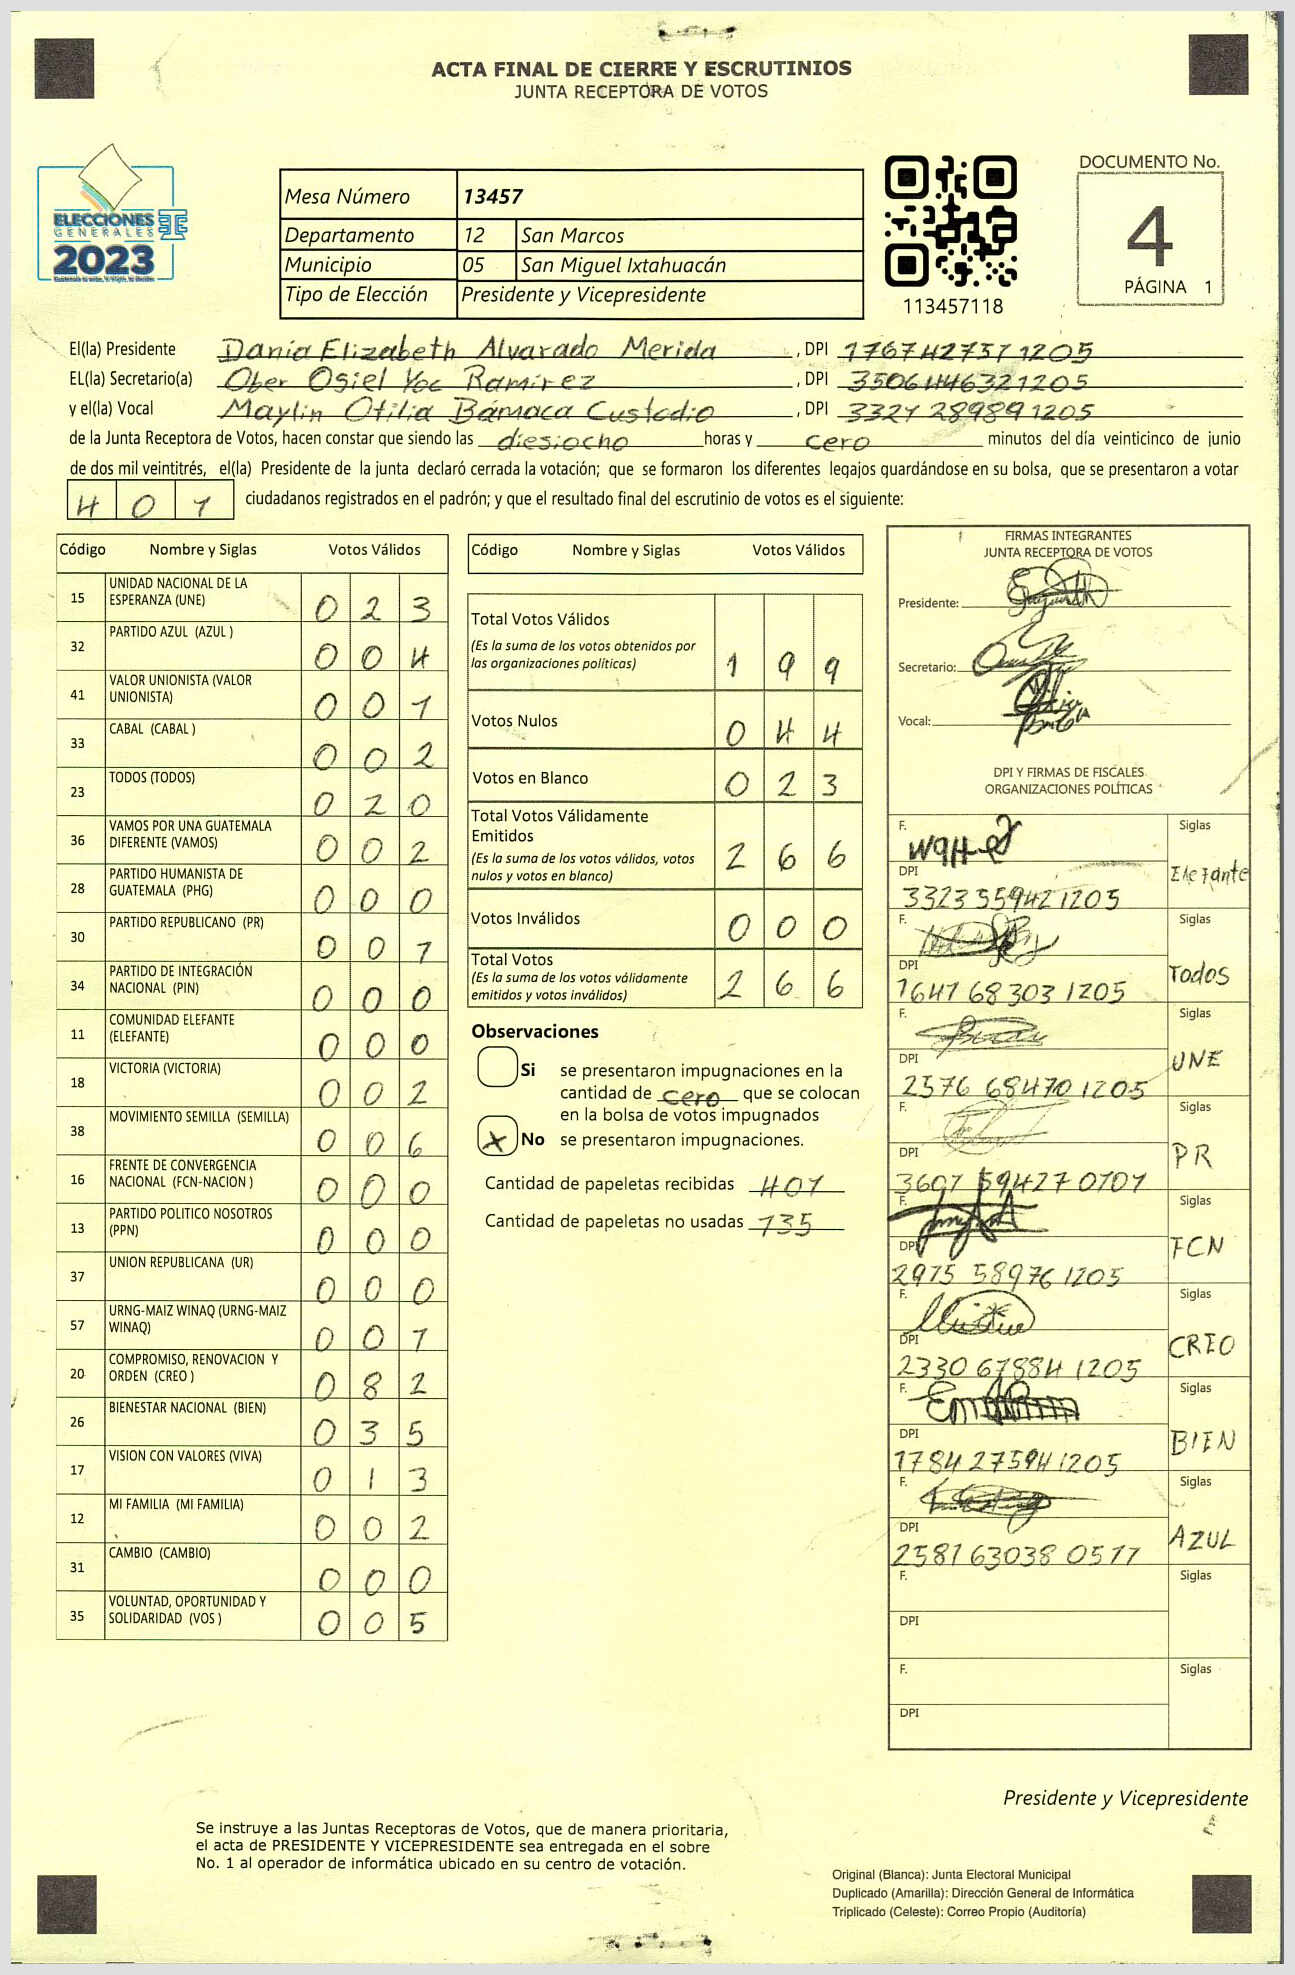 ACTA FINAL DE CIERRE Y ESCRUTINIOS
JUNTA RECEPTORA DE VOTOS
ELECCIONES
GENERALES
2023
Mesa Número 13457
Departamento 12 San Marcos
Municipio 05 San Miguel Ixtahuacán
Tipo de Elección Presidente y Vicepresidente
113457118
DOCUMENTO No.
4
PÁGINA 1
El(la) Presidente Dania Elizabeth Alvarado Merida, DPI 1767427571205
EL(la) Secretario(a) Ober Osiel Yoc Ramirez, DPI 3506446321205
y el(la) Vocal Maylin Otilia Bámaca Custodio, DPI 3327 28989 1205
de la Junta Receptora de Votos, hacen constar que siendo las diesiocho horas y cero minutos del día veinticinco de junio
de dos mil veintitrés, el(la) Presidente de la junta declaró cerrada la votación; que se formaron los diferentes legajos guardándose en su bolsa, que se presentaron a votar
401 ciudadanos registrados en el padrón; y que el resultado final del escrutinio de votos es el siguiente:
Código Nombre y Siglas Votos Válidos
15 UNIDAD NACIONAL DE LA ESPERANZA (UNE) 023
32 PARTIDO AZUL (AZUL ) 004
41 VALOR UNIONISTA (VALOR UNIONISTA) 001
33 CABAL (CABAL ) 002
23 TODOS (TODOS) 020
36 VAMOS POR UNA GUATEMALA DIFERENTE (VAMOS) 002
28 PARTIDO HUMANISTA DE GUATEMALA (PHG) 000
30 PARTIDO REPUBLICANO (PR) 001
34 PARTIDO DE INTEGRACIÓN NACIONAL (PIN) 000
11 COMUNIDAD ELEFANTE (ELEFANTE) 000
18 VICTORIA (VICTORIA) 002
38 MOVIMIENTO SEMILLA (SEMILLA) 006
16 FRENTE DE CONVERGENCIA NACIONAL (FCN-NACION ) 000
13 PARTIDO POLITICO NOSOTROS (PPN) 000
37 UNION REPUBLICANA (UR) 000
57 URNG-MAIZ WINAQ (URNG-MAIZ WINAQ) 001
20 COMPROMISO, RENOVACION Y ORDEN (CREO ) 082
26 BIENESTAR NACIONAL (BIEN) 035
17 VISION CON VALORES (VIVA) 013
12 MI FAMILIA (MI FAMILIA) 002
31 CAMBIO (CAMBIO) 000
35 VOLUNTAD, OPORTUNIDAD Y SOLIDARIDAD (VOS ) 005
Código Nombre y Siglas Votos Válidos
Total Votos Válidos
(Es la suma de los votos obtenidos por
las organizaciones políticas) 199
Votos Nulos 044
Votos en Blanco 023
Total Votos Válidamente
Emitidos
(Es la suma de los votos válidos, votos
nulos y votos en blanco) 266
Votos Inválidos 000
Total Votos
(Es la suma de los votos válidamente
emitidos y votos inválidos) 266
Observaciones
Si se presentaron impugnaciones en la
cantidad de cero que se colocan
en la bolsa de votos impugnados
X No se presentaron impugnaciones.
Cantidad de papeletas recibidas 401
Cantidad de papeletas no usadas 135
FIRMAS INTEGRANTES
JUNTA RECEPTORA DE VOTOS
Presidente:
Secretario:
Vocal:
DPI Y FIRMAS DE FISCALES
ORGANIZACIONES POLÍTICAS
F. Siglas
DPI Elefante
3323 55942 1205
F. Siglas
DPI Todos
1647 68303 1205
F. Siglas
DPI UNE
2576 68470 1205
F. Siglas
DPI PR
3607 59427 0101
F. Siglas
DPI FCN
2975 58976 1205
F. Siglas
DPI CREO
2330 67884 1205
F. Siglas
DPI BIEN
1784 27594 1205
F. Siglas
DPI AZUL
2581 63038 0511
F. Siglas
DPI
F. Siglas
DPI
Presidente y Vicepresidente
Se instruye a las Juntas Receptoras de Votos, que de manera prioritaria,
el acta de PRESIDENTE Y VICEPRESIDENTE sea entregada en el sobre
No. 1 al operador de informática ubicado en su centro de votación.
Original (Blanca): Junta Electoral Municipal
Duplicado (Amarilla): Dirección General de Informática
Triplicado (Celeste): Correo Propio (Auditoría)